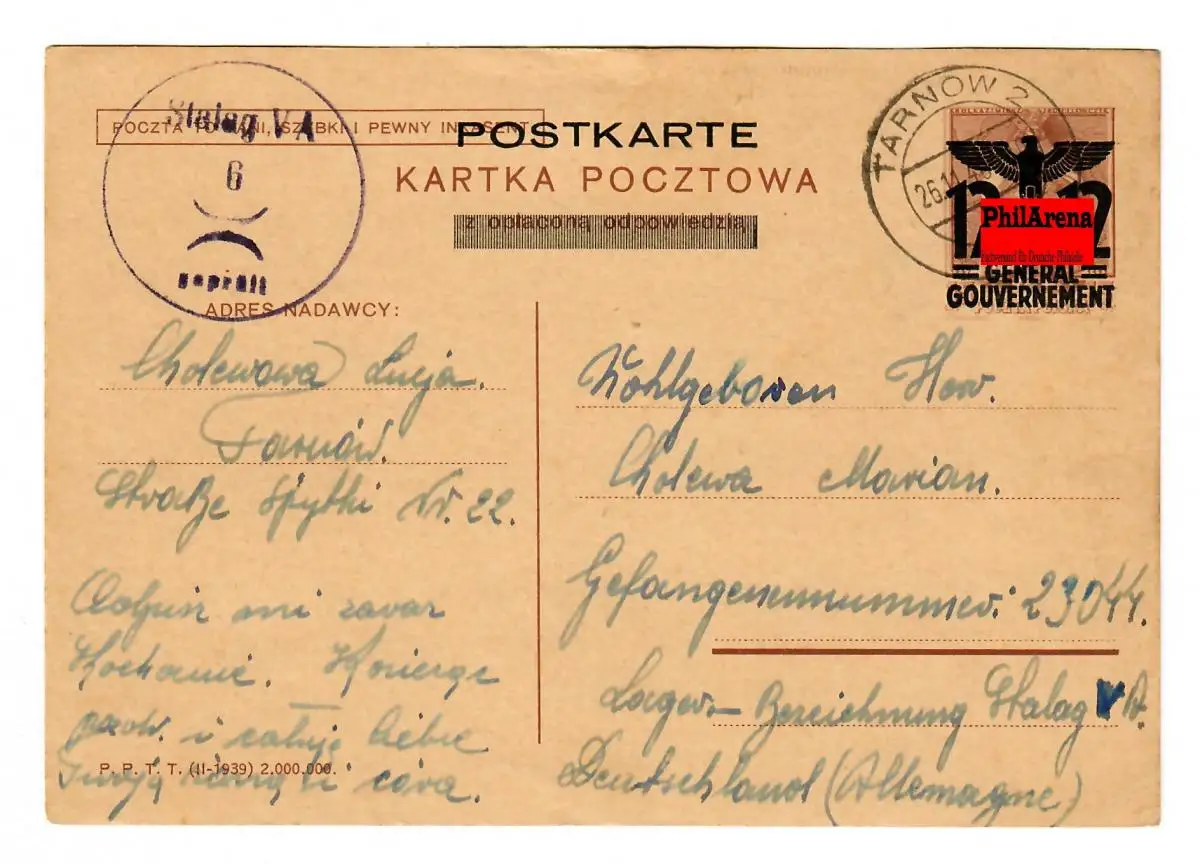 Stalag V A
6
geprüft
POCZTA TANI, SZYBKI I PEWNY INKASENT
POSTKARTE
KARTKA POCZTOWA
z opłaconą odpowiedzią
TARNOW 2
26.11.40
12 12
PhilArena
GENERAL
GOUVERNEMENT
ADRES NADAWCY:
Cholewowa Lucja.
Tarnów.
Straße Spytki Nr. 22.
Odpisz mi zaraz
Kochanie.
i całuję Ciebie
Twoja
P. P. T. T. (II-1939) 2.000.000.
Wohlgeboren Herr.
Cholewa Marian.
Gefangenennummer: 23044.
Lager-Bezeichnung Stalag V A.
Deutschland (Allemagne)